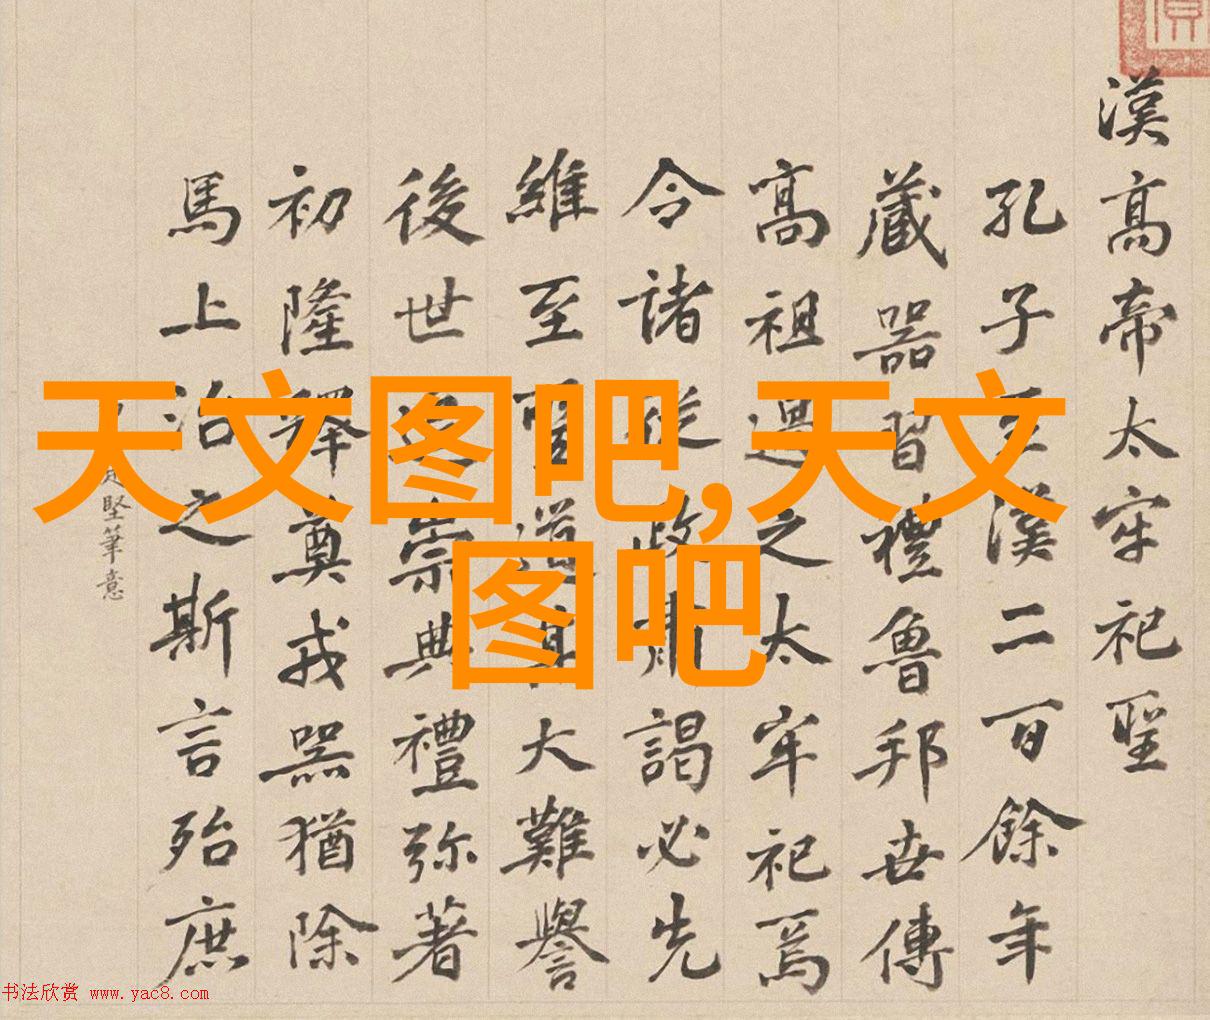 漢高帝太牢祀聖
孔子漢二百餘年
藏器習禮魯邦世傳
高祖過之太牢祀焉
令諸從政謁必先
維至聖道其大難譽
後世崇典禮弥著
初隆釋奠戎器猶除
馬上治之斯言殆庶
堅筆意
天文图吧,天文
图吧
书法欣赏 www.yac8.com